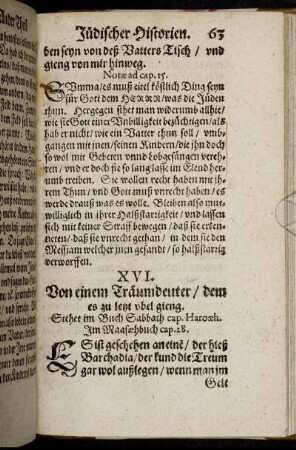 Jüdischer Historien. 63
ben seyn von deß Vatters Tisch / vnd
gieng von mir hinweg.
Notæ ad cap. 15.
SVmma / es muß eitel köstlich Ding seyn
für Gott dem HERRN / was die Jüden
thun. Hergegen sihet man widerumb allhie /
wie sie Gott einer Vnbilligkeit bezüchtigen / als
hab er nicht / wie ein Vatter thun soll / vmb-
gangen mit jnen / seinen Kindern / die jhn doch
so wol mit Geberen vnnd Lobgesängen vereh-
ren / vnd er doch sie so lang lasse im Elend her-
umb treiben. Sie wollen recht haben mit jh-
rem Thun / vnd Gott muß vnrecht haben / es
werde drauß was es wolle. Bleiben also mut-
willig in jhrer Halßstarrigkeit / vnd lassen
sich mit keiner Straff bewegen / daß sie erken-
neten / daß sie vnrecht gethan / in dem sie den
Messiam welcher jnen gesandt / so halßstarrig
verworffen.
XVI.
Von einem Träumdeuter / dem
es zu letzt vbel gieng.
Stehet im Buch Sabbath cap. Haroæh.
Im Maasæhbuch cap. 28.
ES ist geschehen an eine / der hieß
Barchadia / der kund die Treum
gar wol außlegen / wenn man jm
Gelt